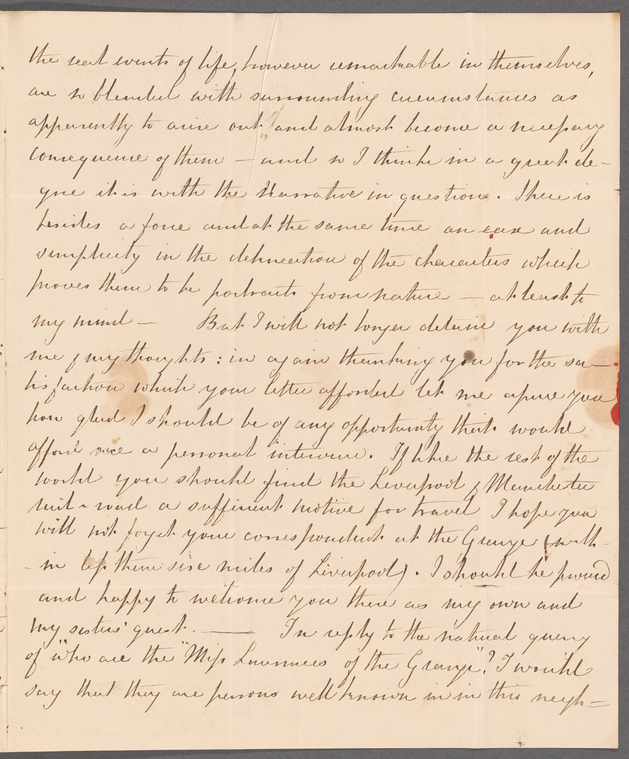 the real events of life, however remarkable in themselves,
are so blended with surrounding circumstances as
apparently to arise out, and almost become a necessary
consequence of them — and so I think in a great de-
gree it is with the Narrative in question. There is
besides a force and at the same time an ease and
simplicity in the delineation of the characters which
proves them to be portraits from nature — at least to
my mind — But I will not longer detain you with
me & my thoughts: in again thanking you for the sa-
tisfaction which your letter afforded let me assure you
how glad I should be of any opportunity that would
afford me a personal interview. If like the rest of the
world you should find the Liverpool & Manchester
rail-road a sufficient motive for travel I hope you
will not forget your correspondent at the Grange (with-
-in less than six miles of Liverpool). I should be proud
and happy to welcome you there as my own and
my sisters' guest. — In reply to the natural query
of "who are the "Miss Lawrences of the Grange"? I would
say that they are persons well known in in this neigh=